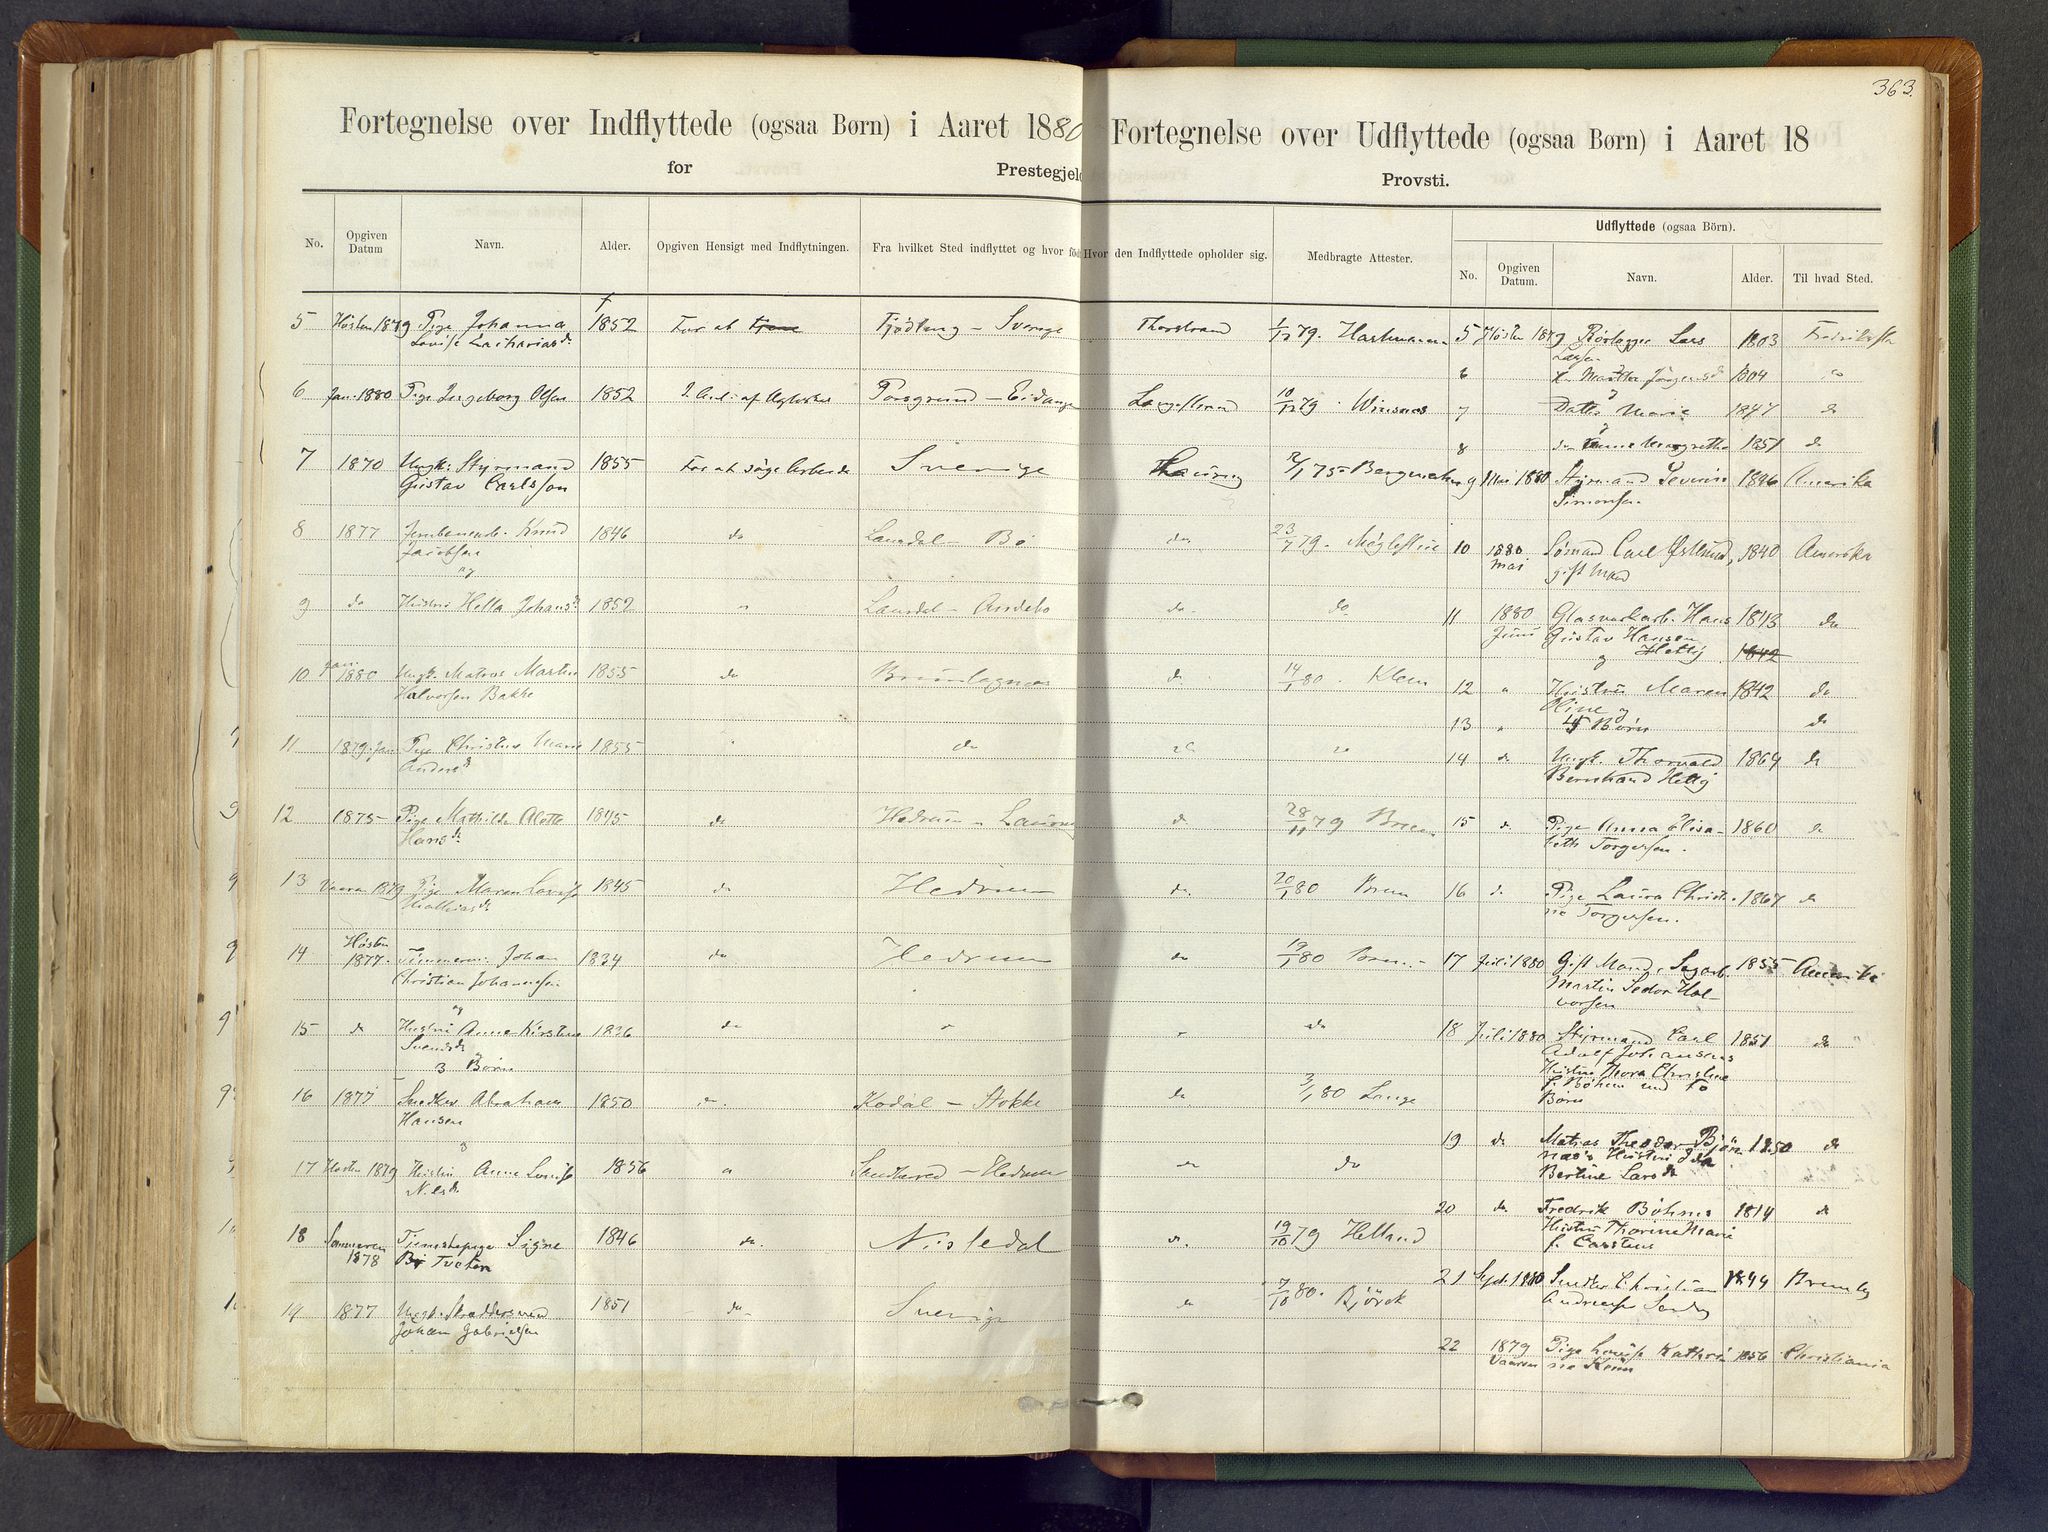 363.
Fortegnelse over Indflyttede (ogsaa Børn) i Aaret 1880
for Prestegjeld
No. Opgiven Datum Navn. Alder. Opgiven Hensigt med Indflytningen. Fra hvilket Sted indflyttet og hvor fød
5 Høsten 1879 Pige Johanna 1852 For at Sverige
Lovise Zachariasd.
6 Jan. 1880 Pige Ingeborg Olsen 1852 Porsgrund – Eidanger
7 1870 Ungk: Styrmand 1855 For at søge Arbeide Sverige
Gustav Carlsson
8 1877 Knud 1846 do Laurdal – Bø
Jacobsen
og
9 do Hustru Hella Johansd. 1852 " Laurdal – Andebo
10 Jan. 1880 Ungk. Matros Martin 1855 do Brunlagnæs
Halvorsen Bakke
11 1879 Jan Pige Christine Marie 1855 " do
Andersd.
12 1875 Pige Mathilde Alette 1845 do Hedrum – Laurvig
Hansd.
13 Vaaren 1879 Pige Maren Lovise 1845 do Hedrum
Mathiasd.
14 Høsten 1877. Tømmerm. Johan 1834 do Hedrum
Christian Johannesen
og
15 do Hustru Anne Kirstine 1836 do "
Svendsd. og
3 Børn
16 1877 Snedker Abraham 1850 do. Kodal – Stokke
Hansen
og
17 Høsten 1879 Hustru Anne Lovise 1856 " Sandherred – Hedrum
Nilsd.
18 Sommeren 1878 Tjenestepige Signe 1846 do. Nissedal
Tveten
19 1877 Ungk. Skræddersvend 1851 do Sverige
Johan Gabrielsen
Fortegnelse over Udflyttede (ogsaa Børn) i Aaret 18
Provsti.
Hvor den Indflyttede opholder sig. Medbragte Attester.
Thorstrand 1/12 79. Hartmann
Langestrand 10/12 79. Winsnes
Laurvig 12/1 75
do. 23/7 79.
do. do
do. 14/1 80. Klem
do "
do 28/11 79 Brun
do. 20/1 80 Brun
do 19/1 80 Brun
" do
do 3/1 80 Lange
do do
do. 19/10 79 Helland
do 7/10 80. Bjørck
Udflyttede (ogsaa Börn).
No. Opgiven Datum. Navn. Alder. Til hvad Sted.
5 Høsten 1879 Rørlægger Lars 1803 Fredrikssta
Larsen
6 Martha Jørgensd. 1804 do
7 Datter Marie 1847 do
8 do Anne Margrethe 1851 do
9 Mai 1880 Styrmand Severin 1846 Amerika
Simonsen.
10 1880 mai Sømand Carl Østlund, 1840 Amerika
gift Mand
11 1880 Juni Glasværkarb. Hans 1843 do
Gustav Hansen
og Hettij 1842
12 " Hustru Maren 1842 do
Oline og
13 " 5 Børn do
14 do Ungk. Thorvald 1864 do
Bernhard Hettij
15 do. Pige Anna Elisa- 1860 do
beth Torgersen.
16 do Pige Laura Christi- 1867 do
ne Torgersen.
17 Juli 1880 Gift Mand, Sagarb. 1855 Amerika
Martin Sedor Hal-
vorsen
18 Juli 1880 Styrmand Carl 1851 do
Adolf Johansens
Hustru Thora Christine
f. Bøhm med to
Børn
19 do Matias Theodor Bjön 1850 do
næs's Hustru Ida
Bertine Larsd.
20 do. Fredrik Bøhms 1814 do
Hustru Thorine Marie
f. Carstens
21 Sept. 1880 Snedker Christian 1844 Brevig
Andreas
22 1879 Vaaren Pige Lovise Kathri 1856 Christiania
ne